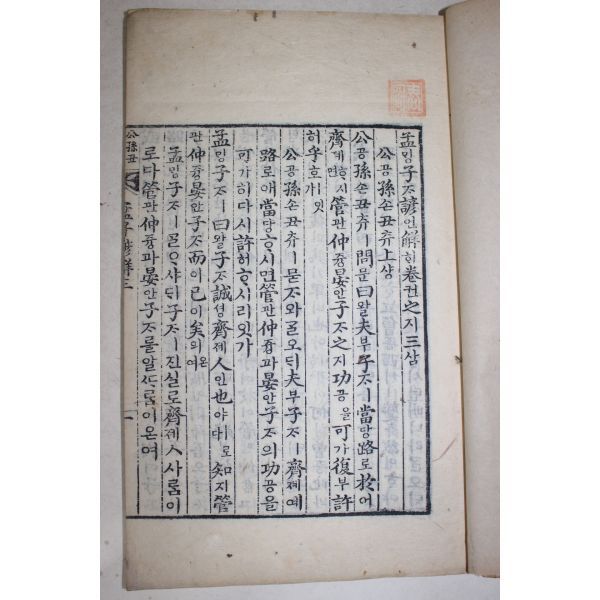 孟ᄆᆡᆼ子ᄌᆞ諺언解ᄒᆡ卷권之지三삼
公공孫손丑츄上샹
公공孫손丑츄ㅣ問문曰왈夫부子ᄌᆞㅣ當당路로於어
齊졔ᄒᆞ시면管관仲듕晏안子ᄌᆞ之지功공을可가復부許
허乎호ㅣ잇가
公공孫손丑츄ㅣ묻ᄌᆞ와ᄀᆞᆯ오ᄃᆡ夫부子ᄌᆞㅣ齊졔예
路로애當당ᄒᆞ시면管관仲듕과晏안子ᄌᆞ의功공을
可가히다시許허ᄒᆞ시리잇가
孟ᄆᆡᆼ子ᄌᆞㅣ曰왈子ᄌᆞ誠셩齊졔人인也야ㅣ로다知지管
관仲듕晏안子ᄌᆞ而이已이矣의온여
孟ᄆᆡᆼ子ᄌᆞㅣᄀᆞᆯᄋᆞ샤ᄃᆡ子ᄌᆞㅣ진실로齊졔人사ᄅᆞᆷ이
로다管관仲듕과晏안子ᄌᆞ를알ᄯᆞᄅᆞᆷ이온여
公孫丑
孟子諺解三
一